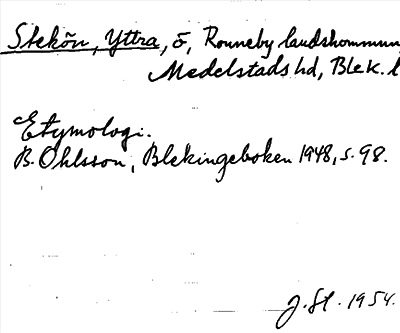 Stekön, Yttra, ö, Ronneby landskommun
Medelstads hd, Blek. l
Etymologi.
B. Ohlsson, Blekingeboken 1948, s. 98.
J. St. 1954.